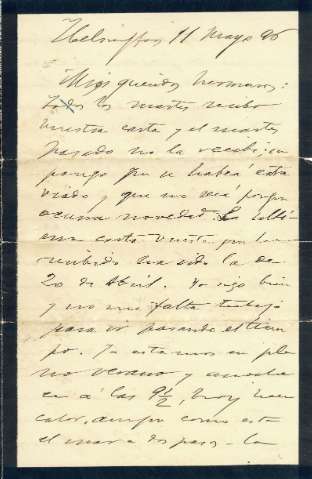 Helsingfors 11 Mayo 96
Mis queridos hermanos:
Todos los martes recibo
vuestra carta y el martes
pasado no la recibí, su
pongo que se habrá extra
viado y que no sea porque
ocurra novedad. La últi-
ma carta vuestra que he
recibido ha sido la de
20 de Abril. Yo sigo bien
y no me falta trabajo
para ir pasando el tiem
po. Ya estamos en ple
no verano y anoche
ce á las 9½, hoy hace
calor, aunque como está
el mar a dos pasos la